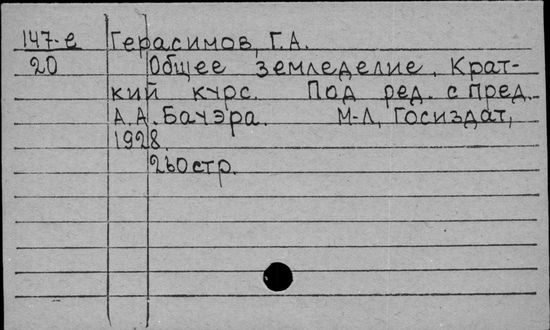 147-е Герасимов, Г.А.
20 Общее земледелие. Крат-
кий курс. Под ред. с пред.
А.А. Бауэра. М-Л, Госиздат,
1928.
260стр.